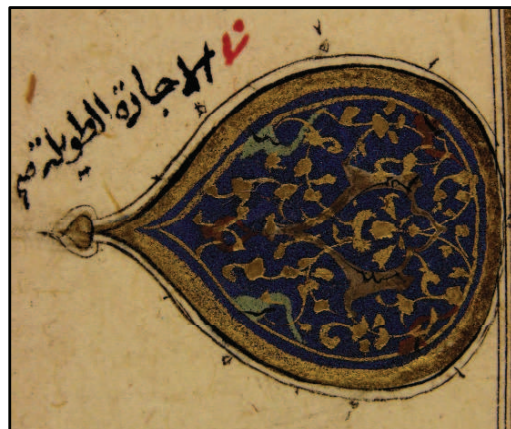 الاجارة الطويلة